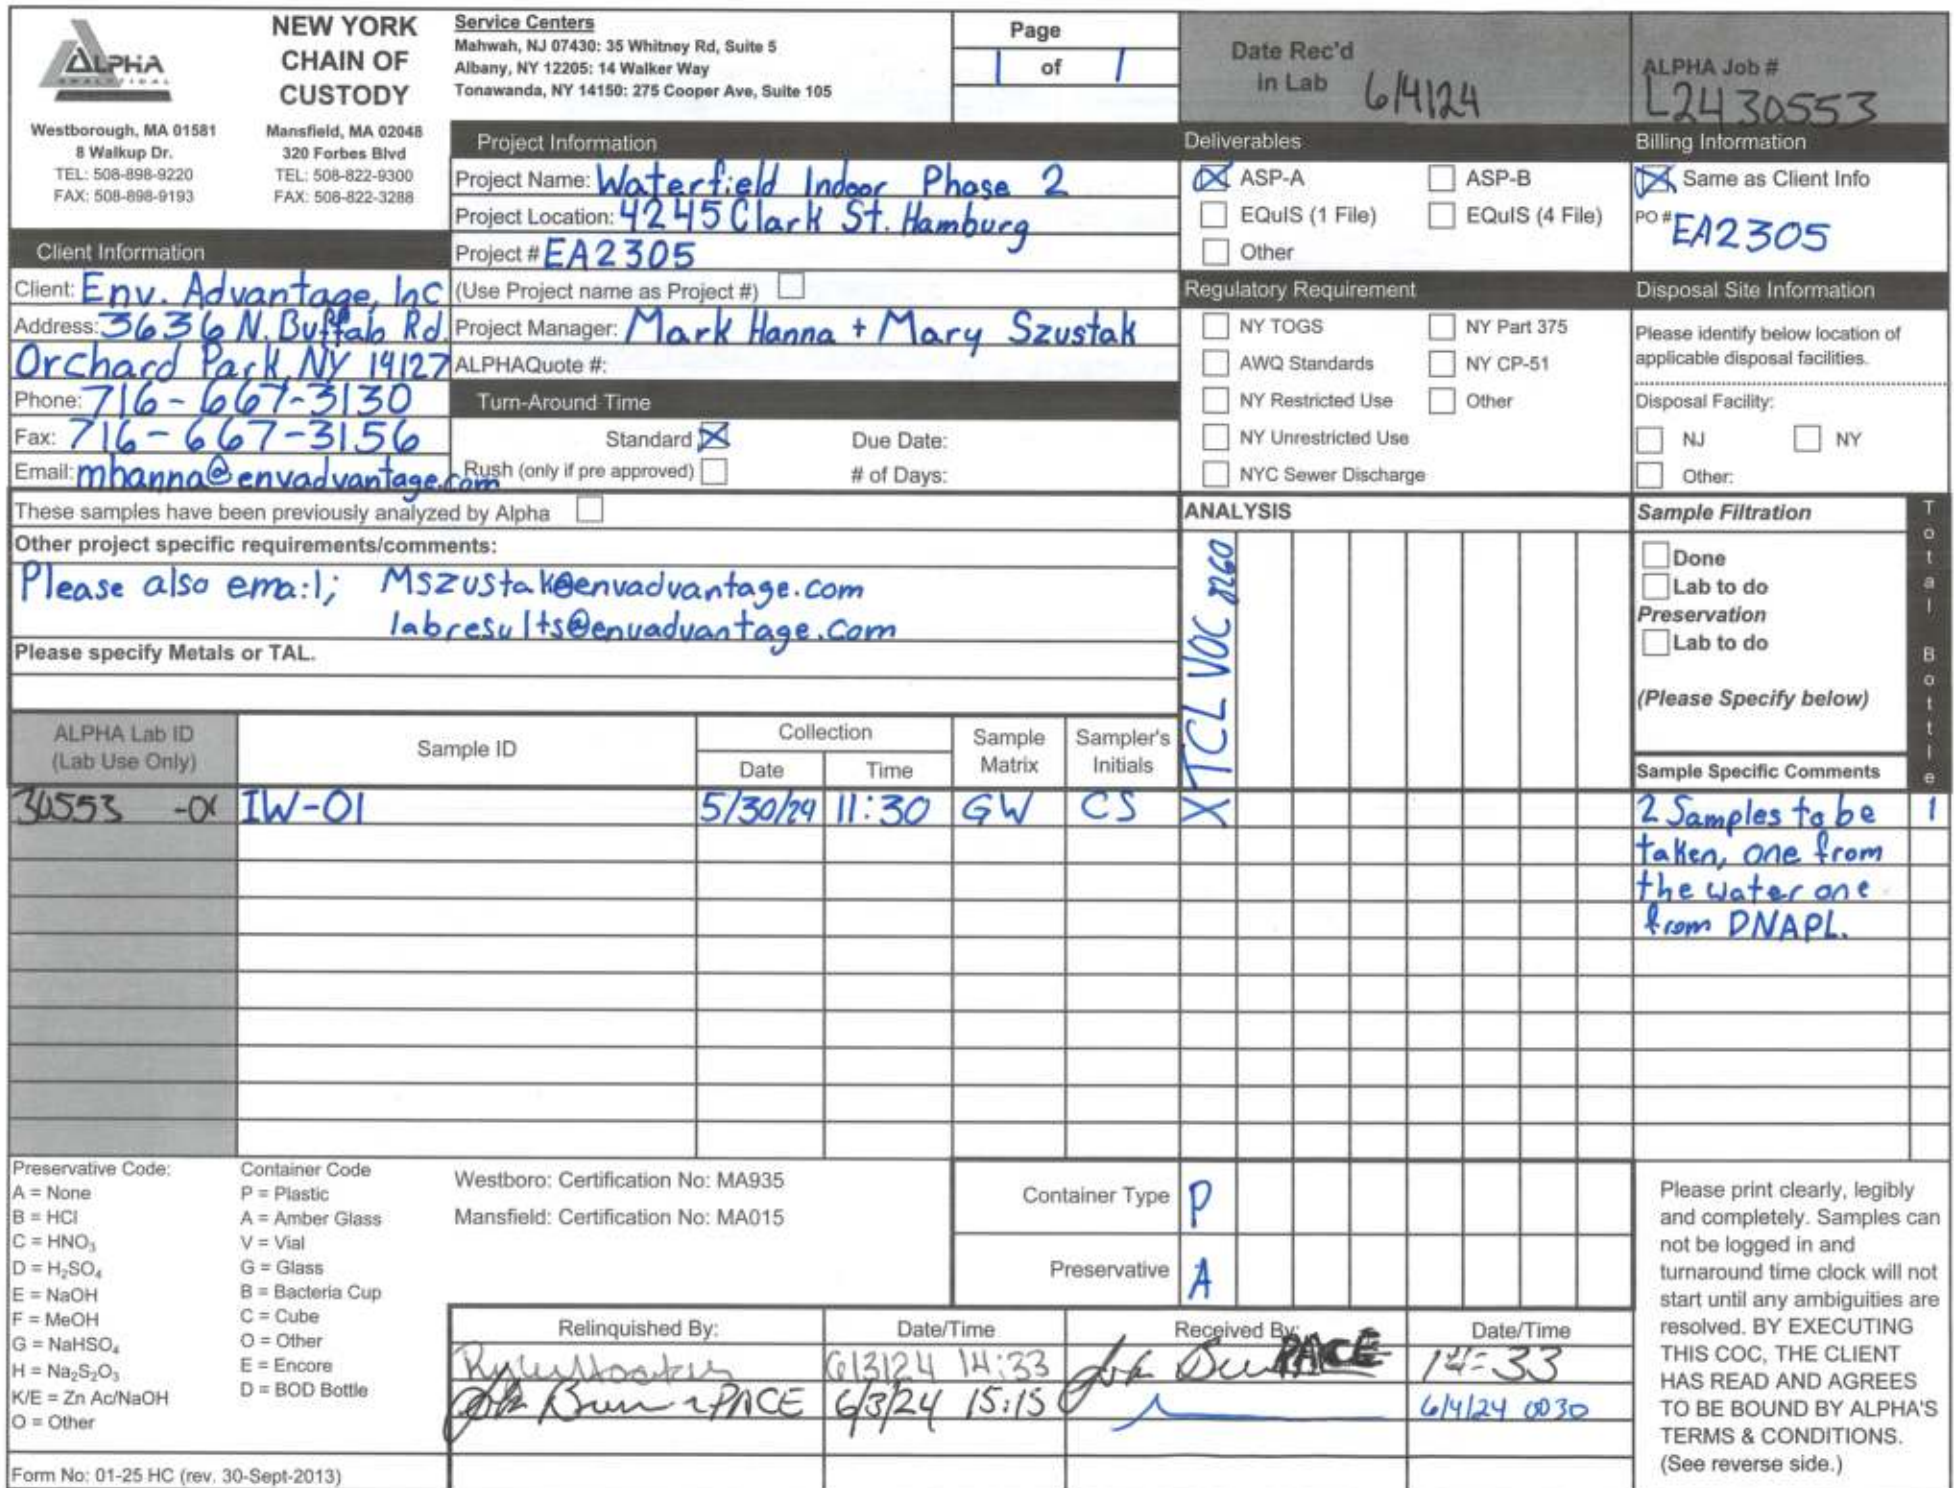 ALPHA
ANALYTICAL
NEW YORK
CHAIN OF
CUSTODY
Westborough, MA 01581
8 Walkup Dr.
TEL: 508-898-9220
FAX: 508-898-9193
Mansfield, MA 02048
320 Forbes Blvd
TEL: 508-822-9300
FAX: 508-822-3288
Service Centers
Mahwah, NJ 07430: 35 Whitney Rd, Suite 5
Albany, NY 12205: 14 Walker Way
Tonawanda, NY 14150: 275 Cooper Ave, Suite 105
Page
1 of 1
Date Rec'd
in Lab 6/4/24
ALPHA Job #
L2430553
Project Information
Project Name: Waterfield Indoor Phase 2
Project Location: 4245 Clark St. Hamburg
Project # EA2305
(Use Project name as Project #)
Project Manager: Mark Hanna + Mary Szustak
ALPHAQuote #:
Deliverables
ASP-A ASP-B
EQuIS (1 File) EQuIS (4 File)
Other
Billing Information
Same as Client Info
PO # EA2305
Client Information
Client: Env. Advantage, Inc
Address: 3636 N. Buffalo Rd.
Orchard Park, NY 14127
Phone: 716-667-3130
Fax: 716-667-3156
Email: mhanna@envadvantage.com
Turn-Around Time
Standard Due Date:
Rush (only if pre approved) # of Days:
Regulatory Requirement
NY TOGS NY Part 375
AWQ Standards NY CP-51
NY Restricted Use Other
NY Unrestricted Use
NYC Sewer Discharge
Disposal Site Information
Please identify below location of
applicable disposal facilities.
Disposal Facility:
NJ NY
Other:
These samples have been previously analyzed by Alpha
Other project specific requirements/comments:
Please also email; Mszustak@envadvantage.com
labresults@envadvantage.com
Please specify Metals or TAL.
ANALYSIS
TCL VOC 8260
Sample Filtration
Done
Lab to do
Preservation
Lab to do
(Please Specify below)
Total Bottle
ALPHA Lab ID
(Lab Use Only)
Sample ID
Collection
Date Time
Sample
Matrix
Sampler's
Initials
Sample Specific Comments
30553 IW-01 5/30/24 11:30 GW CS X 2 Samples to be 1
taken, one from
the water one
from DNAPL.
Preservative Code:
A = None
B = HCl
C = HNO₃
D = H₂SO₄
E = NaOH
F = MeOH
G = NaHSO₄
H = Na₂S₂O₃
K/E = Zn Ac/NaOH
O = Other
Container Code
P = Plastic
A = Amber Glass
V = Vial
G = Glass
B = Bacteria Cup
C = Cube
O = Other
E = Encore
D = BOD Bottle
Westboro: Certification No: MA935
Mansfield: Certification No: MA015
Container Type P
Preservative A
Relinquished By: Date/Time Received By: Date/Time
6/3/24 14:33 PACE 14:33
PACE 6/3/24 15:15 6/4/24 0030
Please print clearly, legibly
and completely. Samples can
not be logged in and
turnaround time clock will not
start until any ambiguities are
resolved. BY EXECUTING
THIS COC, THE CLIENT
HAS READ AND AGREES
TO BE BOUND BY ALPHA'S
TERMS & CONDITIONS.
(See reverse side.)
Form No: 01-25 HC (rev. 30-Sept-2013)